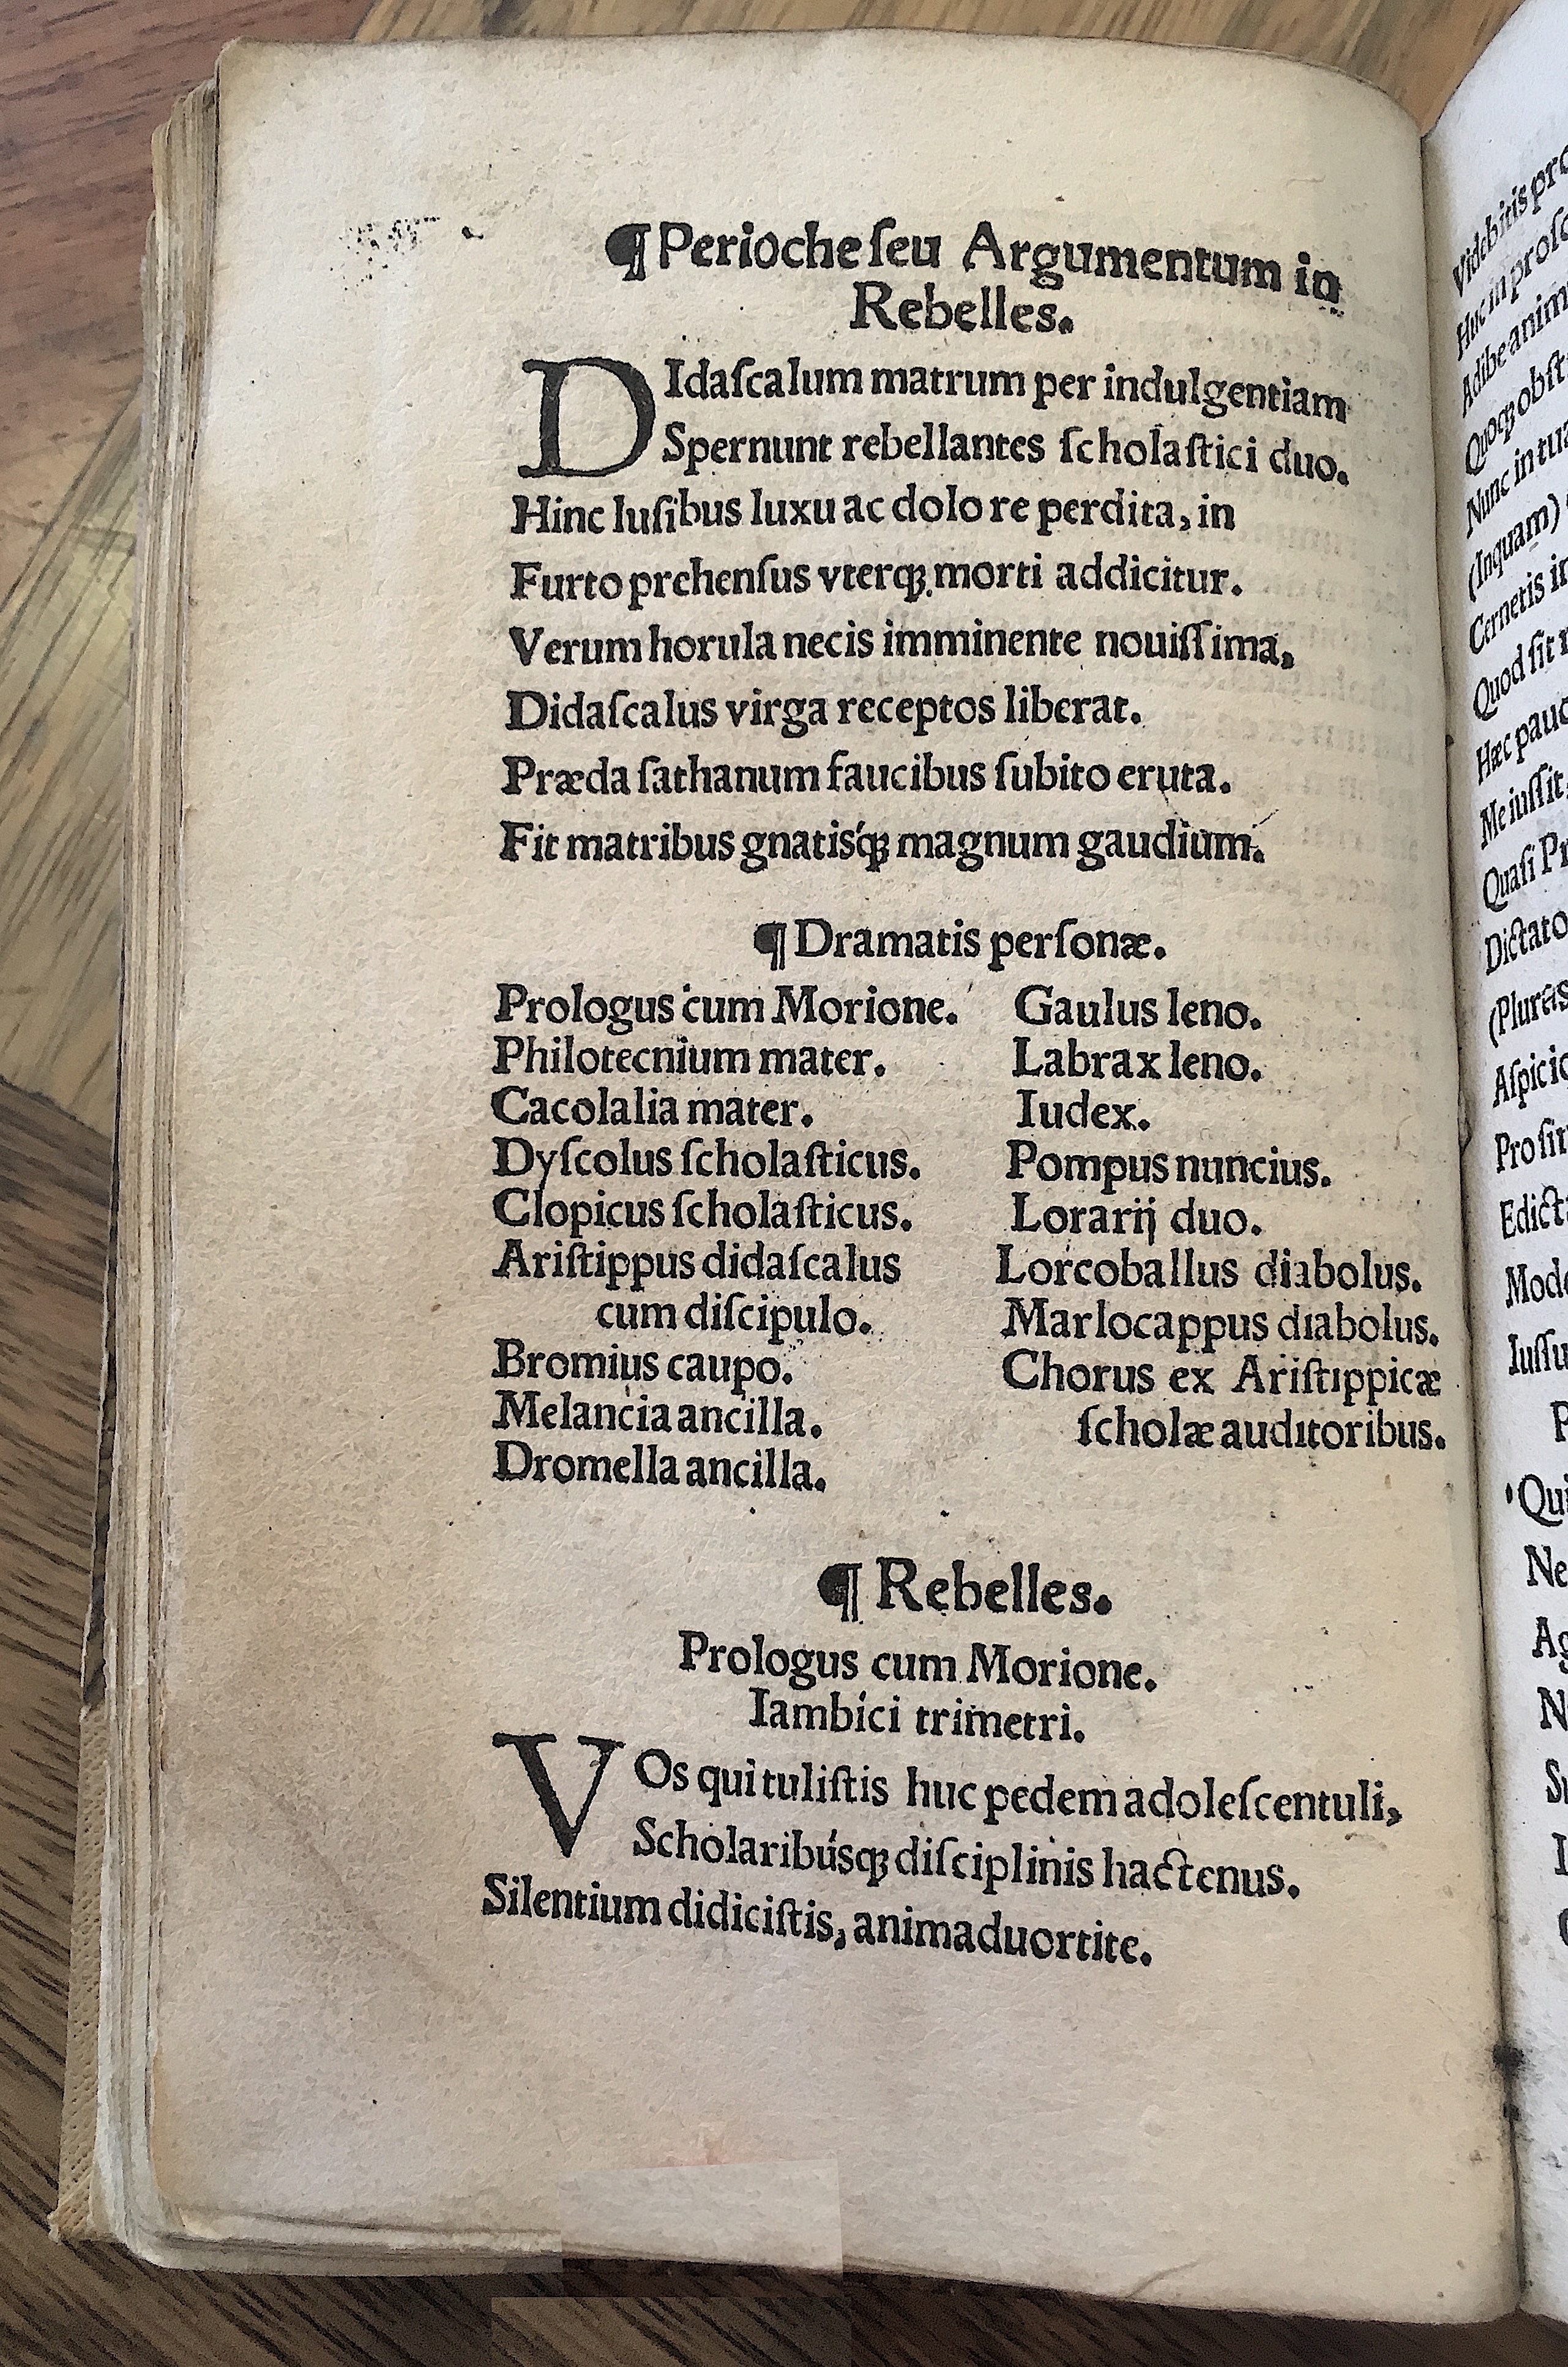 ¶ Perioche ſeu Argumentum in
Rebelles.
DIdaſcalum matrum per indulgentiam
Spernunt rebellantes ſcholaſtici duo.
Hinc luſibus luxu ac dolo re perdita, in
Furto prehenſus vterqꝫ morti addicitur.
Verum horula necis imminente nouiſſima,
Didaſcalus virga receptos liberat.
Præda ſathanum faucibus ſubito eruta.
Fit matribus gnatisq́ꝫ magnum gaudium.
¶ Dramatis perſonæ.
Prologus cum Morione.
Philotecnium mater.
Cacolalia mater.
Dyſcolus ſcholaſticus.
Clopicus ſcholaſticus.
Ariſtippus didaſcalus
cum diſcipulo.
Bromius caupo.
Melancia ancilla.
Dromella ancilla.
Gaulus leno.
Labrax leno.
Iudex.
Pompus nuncius.
Lorarij duo.
Lorcoballus diabolus.
Marlocappus diabolus.
Chorus ex Ariſtippicæ
ſcholæ auditoribus.
¶ Rebelles.
Prologus cum Morione.
Iambici trimetri.
VOs qui tuliſtis huc pedem adoleſcentuli,
Scholaribúsqꝫ diſciplinis hactenus.
Silentium didiciſtis, animaduortite.
Huc in
(Inquam)
Cernetis
Quod ſit
Hæc
Me iuſſit,
Quaſi